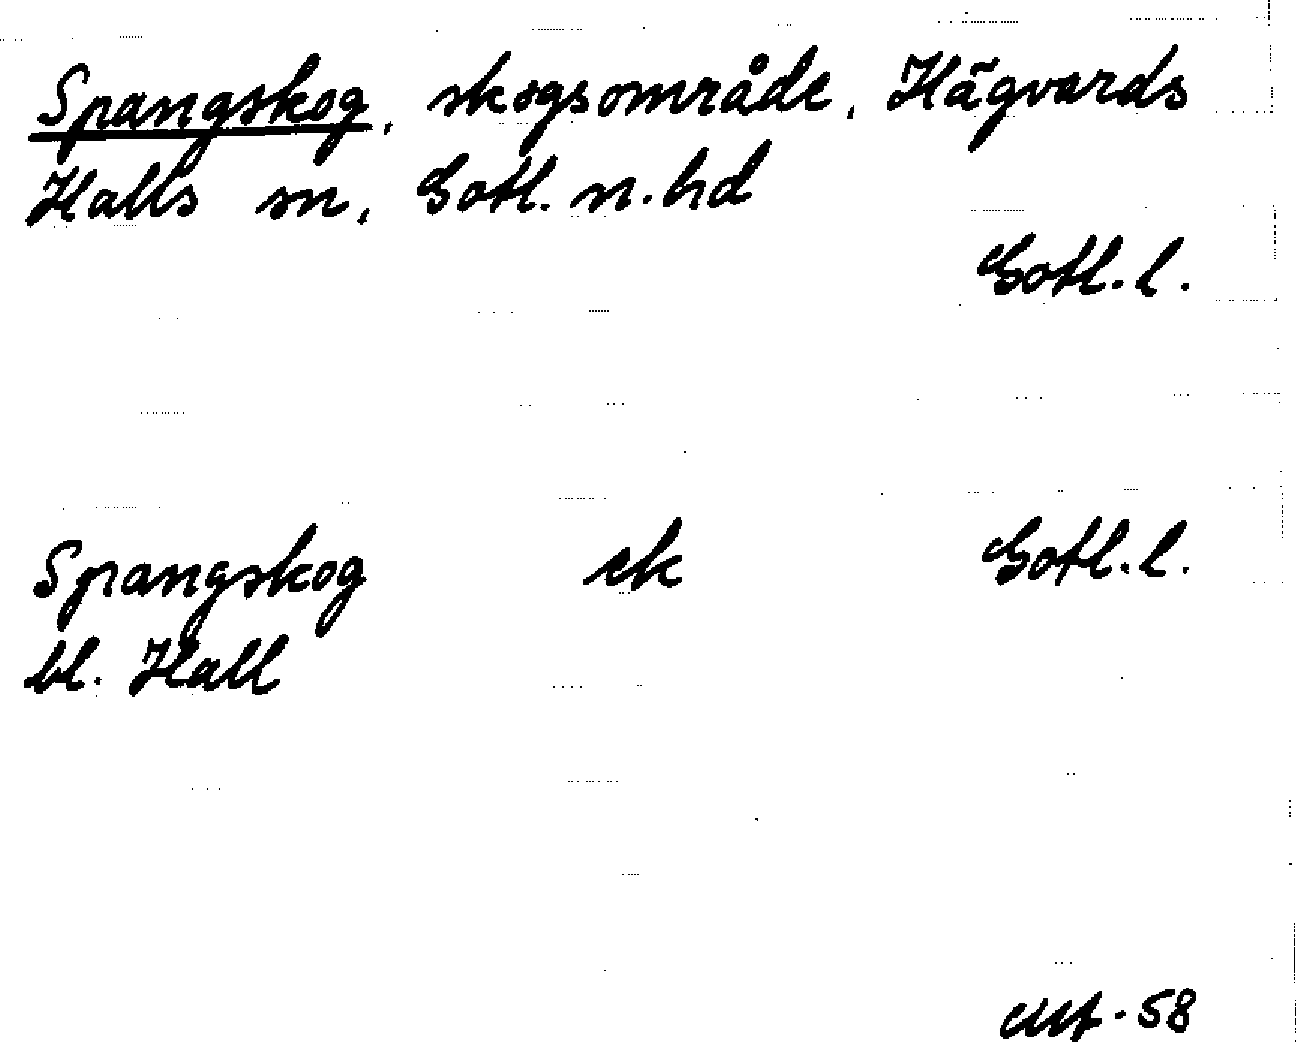 Spangskog, skogsområde, Hägvards
Halls sn, Gotl. n. hd
Gotl. l.
Spangskog ek Gotl. l.
bl. Hall
58